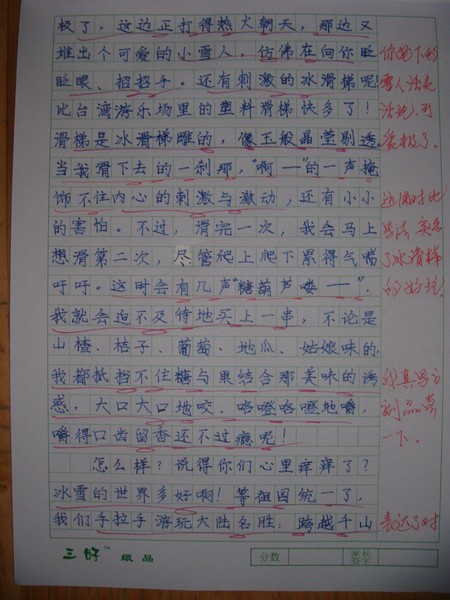 极了，这边正打得热火朝天，那边又
堆出个可爱的小雪人，仿佛在向你眨
眨眼、招招手。还有刺激的冰滑梯呢，
比台湾游乐场里的塑料滑梯快多了！
滑梯是冰滑梯雕的，像玉般晶莹剔透
当我滑下去的一刹那，“啊——”的一声掩
饰不住内心的刺激与激动，还有小小
的害怕。不过，滑完一次，我会马上
想滑第二次，尽管爬上爬下累得气喘
吁吁。这时会有几声“糖葫芦喽——”，
我就会迫不及待地买上一串，不论是
山楂、桔子、葡萄、地瓜、姑娘味的，
我都抵挡不住糖与果结合那美味的诱
惑，大口大口地咬、咯噔咯噔地嚼，
嚼得口齿留香还不过瘾呢！
怎么样？说得你们心里痒痒了？
冰雪的世界多好啊！等祖国统一了，
我们手拉手游玩大陆名胜：跨越千山
你笔下的
雪人活灵
活现，可
爱极了。
这
写法，突出
了冰滑梯
的好玩
我真想立
刻品尝
一下。
表达了对
三好 纸品
分数
家长
签字